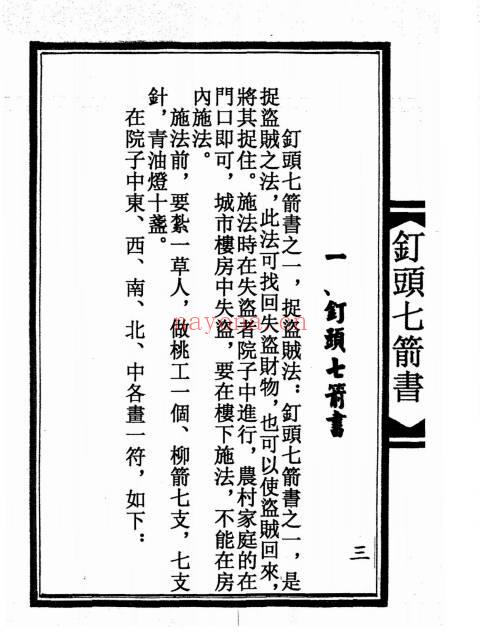 釘頭七箭書
三
一、釘頭七箭書
釘頭七箭書之一，捉盜賊法：釘頭七箭書之一，是
捉盜賊之法，此法可找回失盜財物，也可以使盜賊回來，
將其捉住。施法時在失盜者院子中進行，農村家庭的在
門口即可，城市樓房中失盜，要在樓下施法，不能在房
內施法。
施法前，要紮一草人，做桃工一個、柳箭七支，七支
針，青油燈十盞。
在院子中東、西、南、北、中各畫一符，如下：
nayona.cn